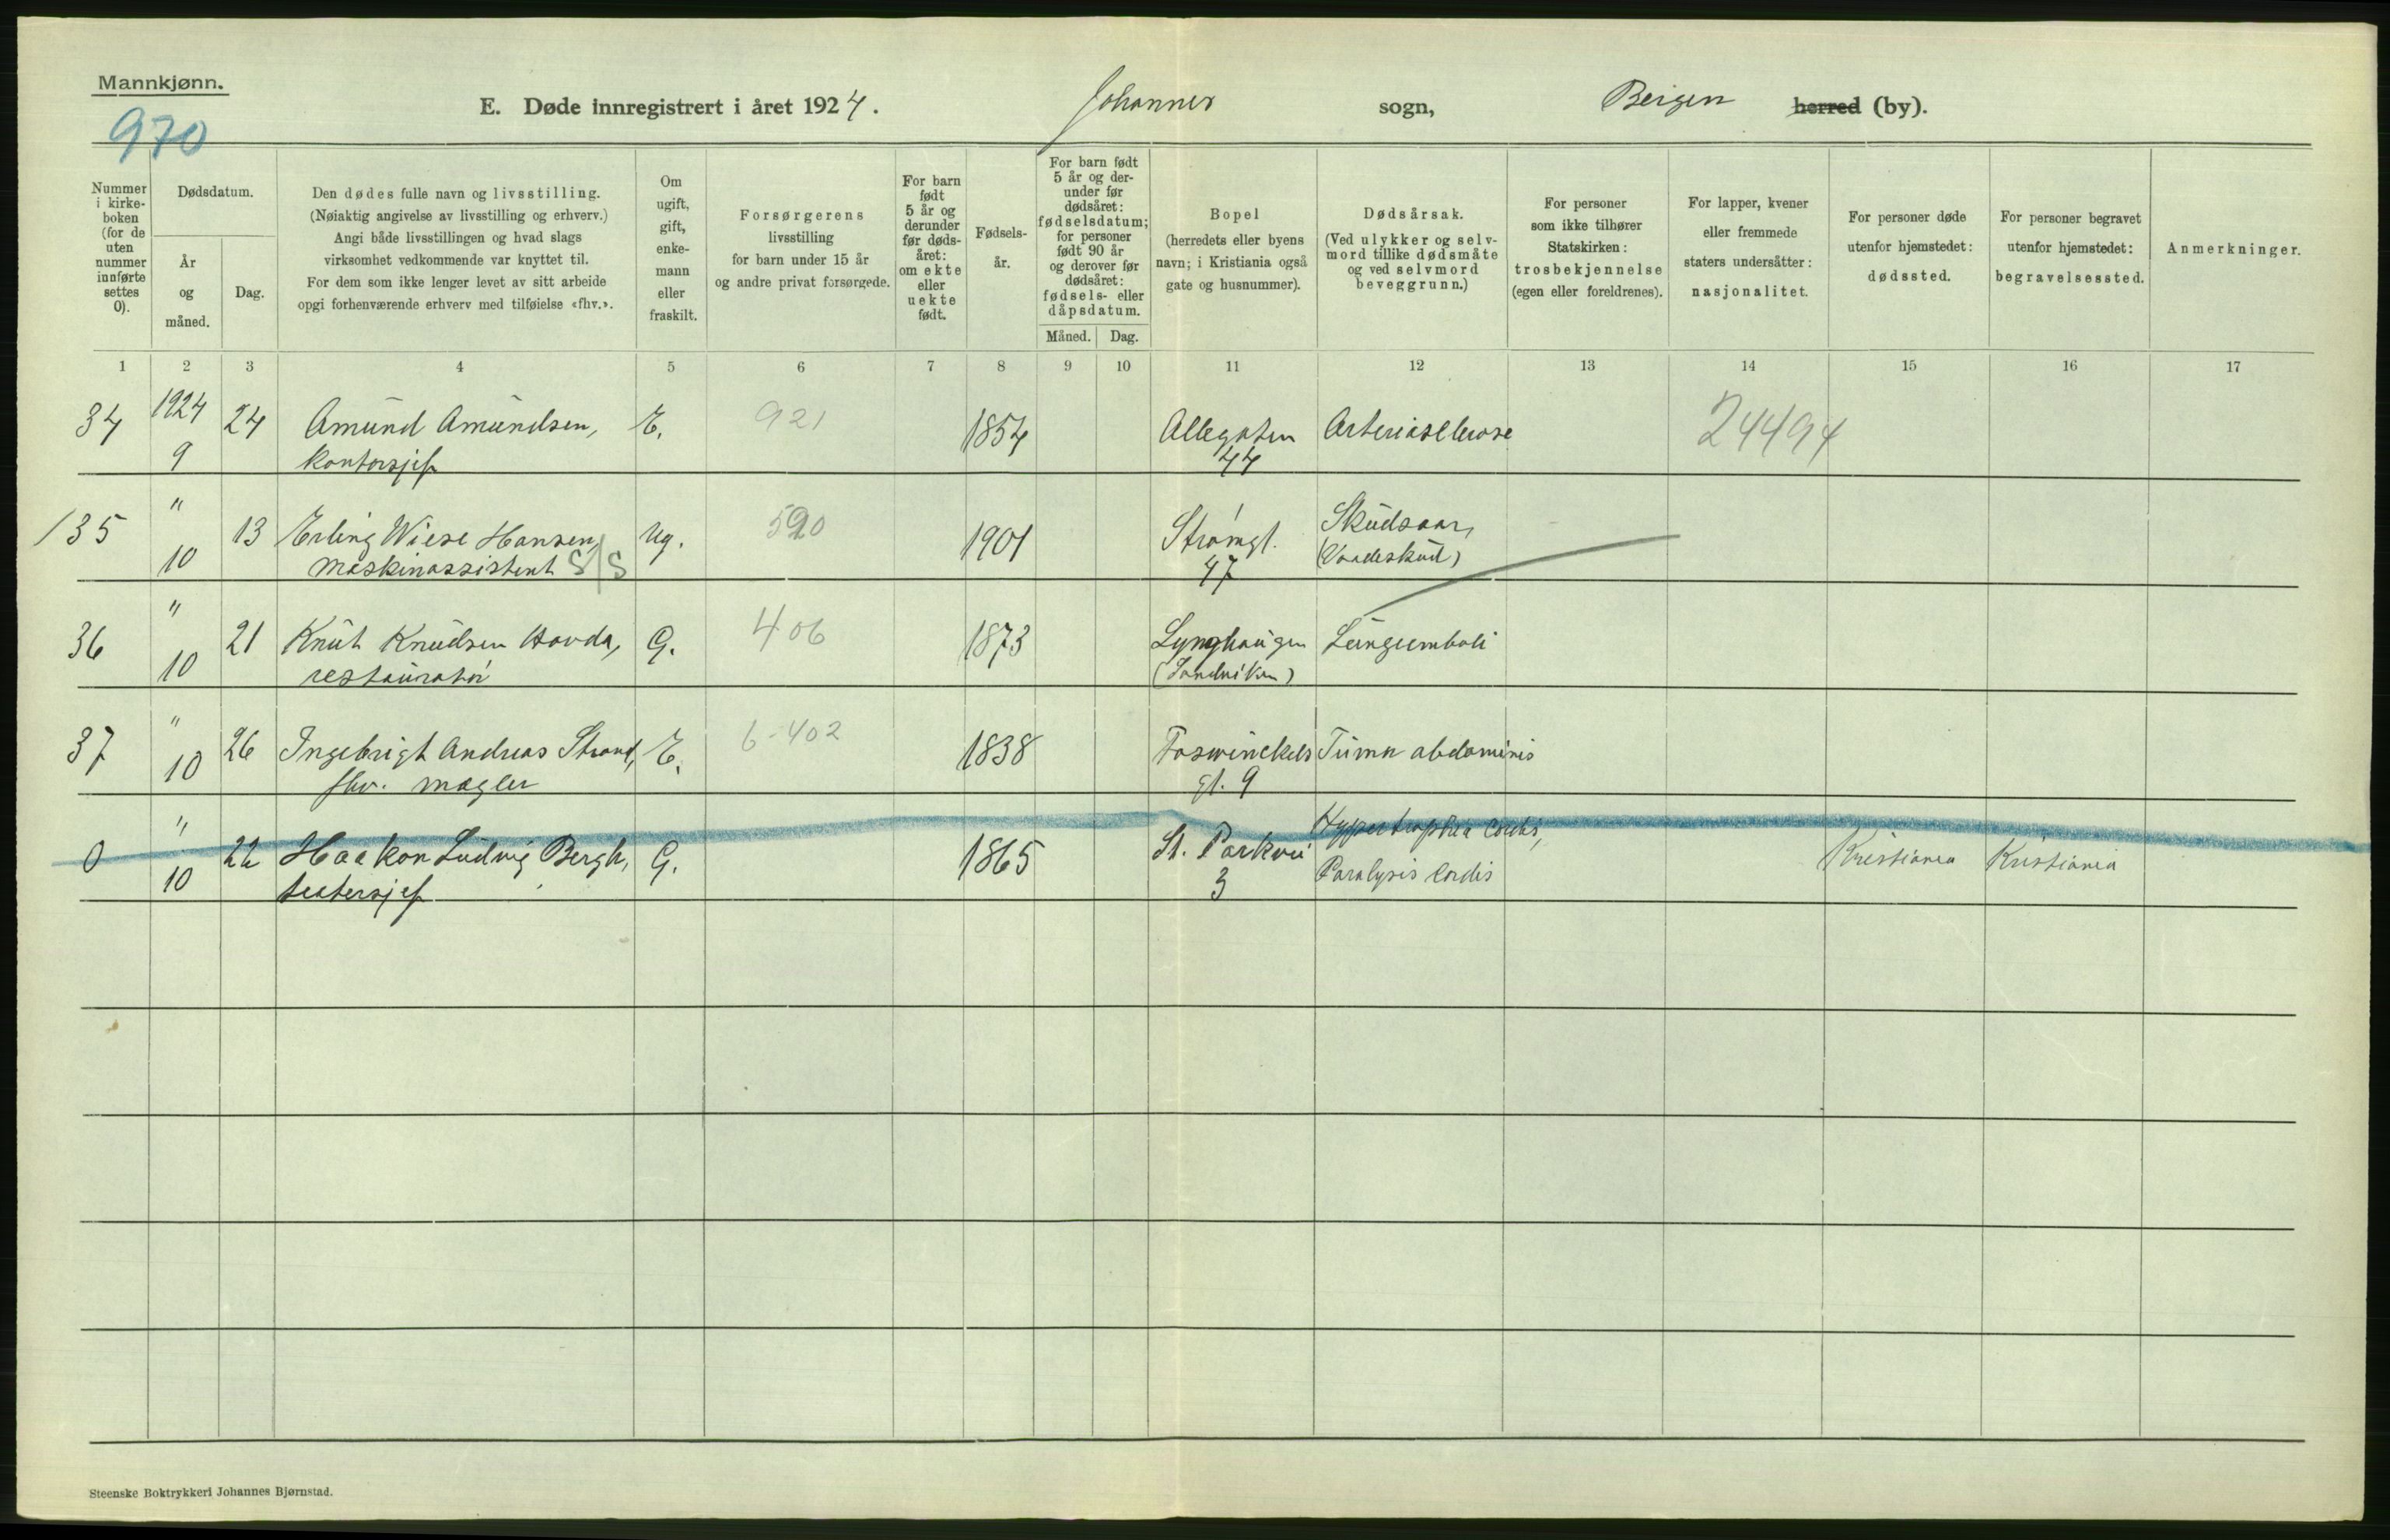 Mannkjønn.
970
E. Døde innregistrert i året 1924. Johannes sogn, Bergen herred (by).
Nummer i kirke-boken (for de uten nummer innførte settes 0).
Dødsdatum.
År og måned.
Dag.
Den dødes fulle navn og livsstilling.
(Nøiaktig angivelse av livsstilling og erhverv.)
Angi både livsstillingen og hvad slags
virksomhet vedkommende var knyttet til.
For dem som ikke lenger levet av sitt arbeide
opgi forhenværende erhverv med tilføielse «fhv.».
Om ugift, gift, enke-mann eller fraskilt.
Forsørgerens
livsstilling
for barn under 15 år
og andre privat forsørgede.
For barn født 5 år og derunder før døds-året: om ekte eller uekte født.
Fødsels-år.
For barn født 5 år og der-under før dødsåret: fødselsdatum; for personer født 90 år og derover før dødsåret: fødsels- eller dåpsdatum.
Måned. Dag.
Bopel
(herredets eller byens
navn; i Kristiania også
gate og husnummer).
Dødsårsak.
(Ved ulykker og selv-
mord tillike dødsmåte
og ved selvmord
beveggrunn.)
For personer
som ikke tilhører
Statskirken:
trosbekjennelse
(egen eller foreldrenes).
For lapper, kvener
eller fremmede
staters undersåtter:
nasjonalitet.
For personer døde
utenfor hjemstedet:
dødssted.
For personer begravet
utenfor hjemstedet:
begravelsessted.
Anmerkninger.
1 2 3 4 5 6 7 8 9 10 11 12 13 14 15 16 17
34 1924 24 Amund Amundsen, E. 921 1854 Allegaten Arteriosclerose 24494
9 kontorsjef 44
35 " 13 Erling Wiese Hansen, Ug. 590 1901 Strømgt. Skudsaar,
10 maskinassistent S/S 47 (Vaadeskud)
36 " 21 Knut Knudsen Hovda, G. 406 1873 Lynghaugen Lungeemboli
10 restauratør (Sandviken)
37 " 26 Ingebrigt Andreas Strand, E. 6-402 1838 Foswinckels Tumor abdominis
10 fhv. mægler gt. 9
0 " 22 Haakon Ludvig Bergh, G. 1865 St. Parkvei Hypertrophia cordis, Kristiania Kristiania
10 teatersjef 3 Paralysis cordis
Steenske Boktrykkeri Johannes Bjørnstad.